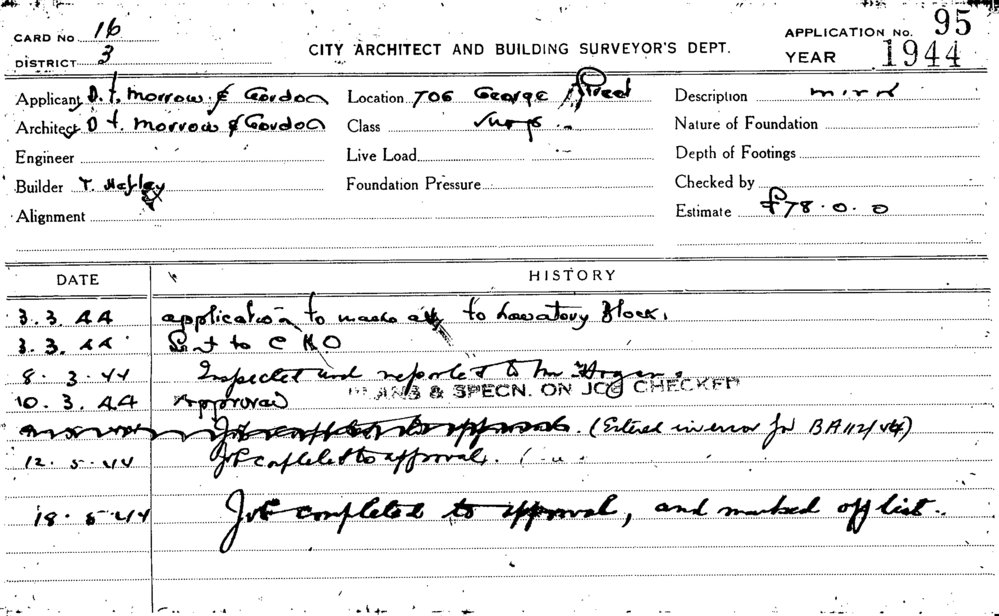 CARD No 16
DISTRICT 3
CITY ARCHITECT AND BUILDING SURVEYOR'S DEPT.
APPLICATION No. 95
YEAR 1944
Applicant D. T. Morrow & Gordon Location 706 George Street Description minor
Architect D T. Morrow & Gordon Class Shops Nature of Foundation
Engineer Live Load Depth of Footings
Builder T. Foundation Pressure Checked by
Alignment Estimate £78.0.0
DATE HISTORY
3.3.44 application to make to Lavatory Block.
3.3.44 Sent to C H O
8.3.44 Inspected and reported to Mr Hogan.
PLANS & SPECN. ON JOB CHECKED
10.3.44 Approved
Job completed to approval. (Entered in error for BA 112/44)
12.5.44 Job completed to approval.
18.5.44 Job completed to approval, and marked off list.